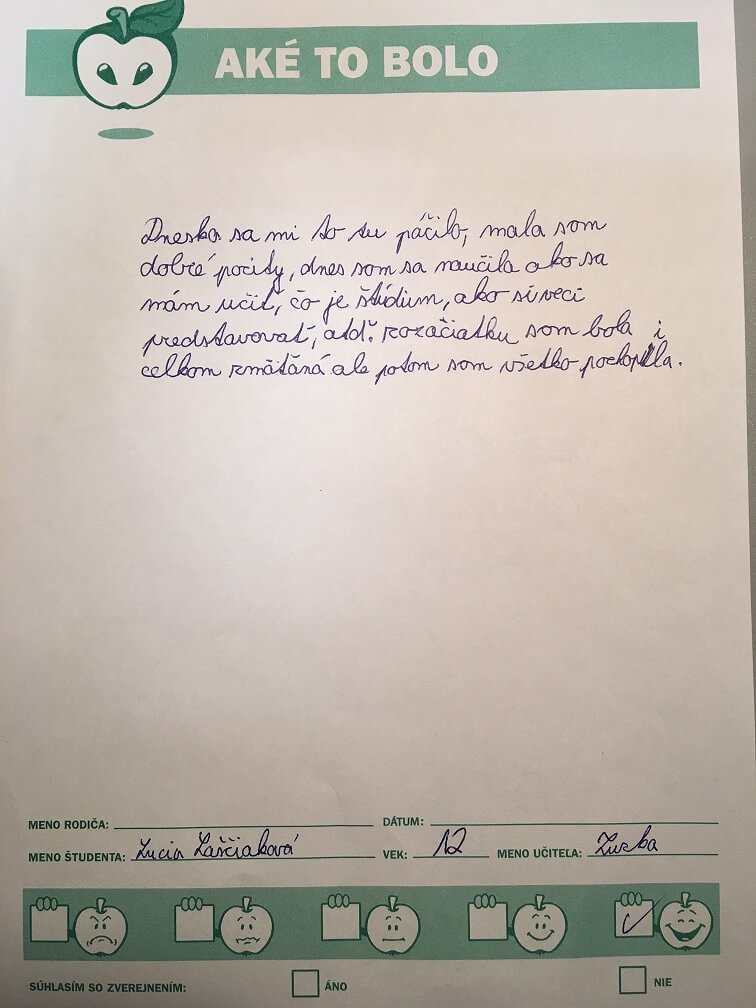 AKÉ TO BOLO
Dneska sa mi to tu páčilo, mala som
dobré pocity, dnes som sa naučila ako sa
mám učiť, čo je štúdium, ako si veci
predstavovať, atď. zozačiatku som bola i
celkom zmätená ale potom som všetko pochopila.
MENO RODIČA: DÁTUM:
MENO ŠTUDENTA: Lucia Laščiaková VEK: 12 MENO UČITEĽA: Zuzka
SÚHLASÍM SO ZVEREJNENÍM: ÁNO NIE